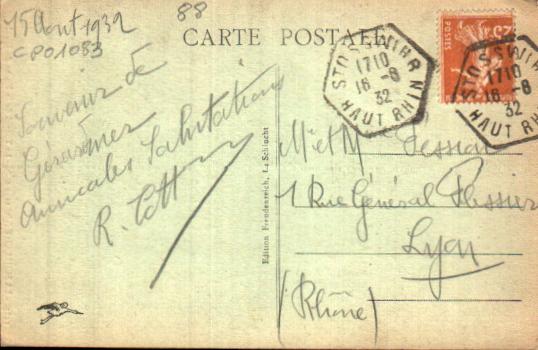 15 Aout 1932
CP01083
88
CARTE POSTALE
Souvenir de
Gérardmer
Amicales Salutations
R.
Edition Freudenreich, La Schlucht
STOSSWIHR
1710
16-8
32
HAUT RHIN
POSTES
25c
STOSSWIHR
1710
16-8
32
HAUT RHIN
M et M Tession
1 Rue Général Plessier
Lyon
(Rhône)